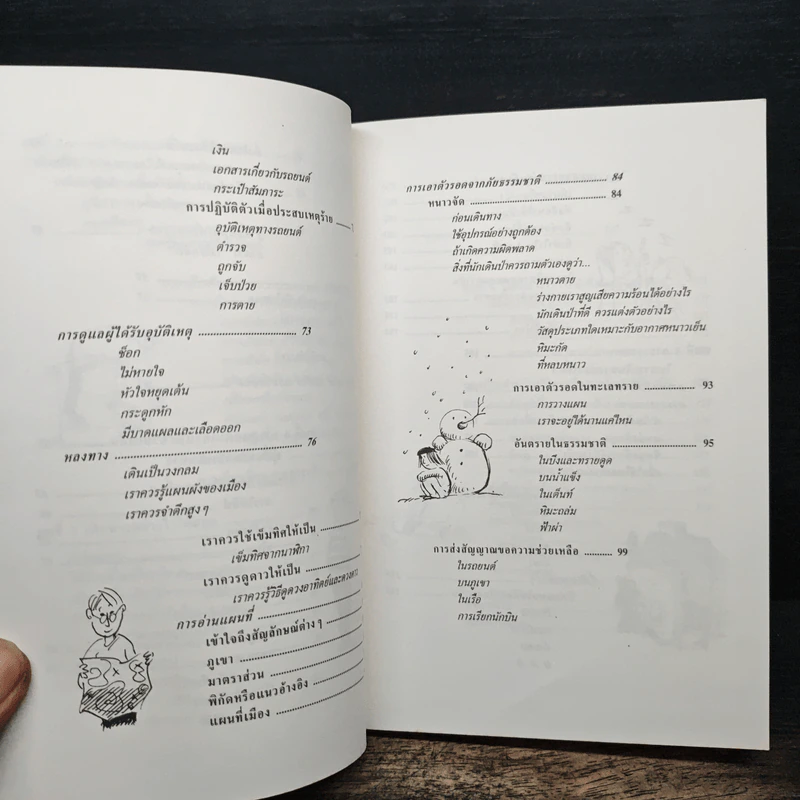 เงิน
เอกสารเกี่ยวกับรถยนต์
กระเป๋าสัมภาระ
การปฏิบัติตัวเมื่อประสบเหตุร้าย
อุบัติเหตุทางรถยนต์
ตำรวจ
ถูกจับ
เจ็บป่วย
การตาย
การดูแลผู้ได้รับอุบัติเหตุ ........................... 73
ช็อก
ไม่หายใจ
หัวใจหยุดเต้น
กระดูกหัก
มีบาดแผลและเลือดออก
หลงทาง ........................... 76
เดินเป็นวงกลม
เราควรรู้แผนผังของเมือง
เราควรจำตึกสูง ๆ
เราควรใช้เข็มทิศให้เป็น ...........
เข็มทิศจากนาฬิกา
เราควรดูดาวให้เป็น ...............
เราควรรู้วิธีดูดวงอาทิตย์และดวงดาว
การอ่านแผนที่ ...........................
เข้าใจถึงสัญลักษณ์ต่าง ๆ ...........
ภูเขา ...........................
มาตราส่วน ...........................
พิกัดหรือแนวอ้างอิง ...............
แผนที่เมือง ...........................
การเอาตัวรอดจากภัยธรรมชาติ .................. 84
หนาวจัด ........................................ 84
ก่อนเดินทาง
ใช้อุปกรณ์อย่างถูกต้อง
ถ้าเกิดความผิดพลาด
สิ่งที่นักเดินป่าควรถามตัวเองดูว่า...
หนาวตาย
ร่างกายเราสูญเสียความร้อนได้อย่างไร
นักเดินป่าที่ดี ควรแต่งตัวอย่างไร
วัสดุประเภทใดเหมาะกับอากาศหนาวเย็น
หิมะกัด
ที่หลบหนาว
การเอาตัวรอดในทะเลทราย ............... 93
การวางแผน
เราจะอยู่ได้นานแค่ไหน
อันตรายในธรรมชาติ ....................... 95
ในบึงและทรายดูด
บนน้ำแข็ง
ในเต็นท์
หิมะถล่ม
ฟ้าผ่า
การส่งสัญญาณขอความช่วยเหลือ .......... 99
ในรถยนต์
บนภูเขา
ในเรือ
การเรียกนักบิน